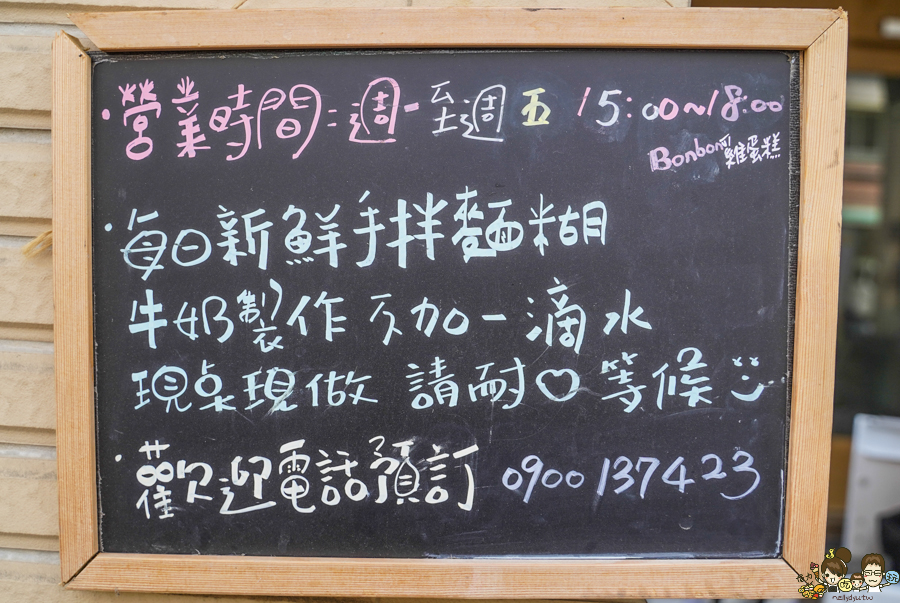 ·營業時間:週一至週五 15:00~18:00
Bonbon雞蛋糕
·每日新鮮手拌麵糊
牛奶製作 不加一滴水
現點現做 請耐♡等候
·歡迎電話預訂 0900137423
nellydyu.tw